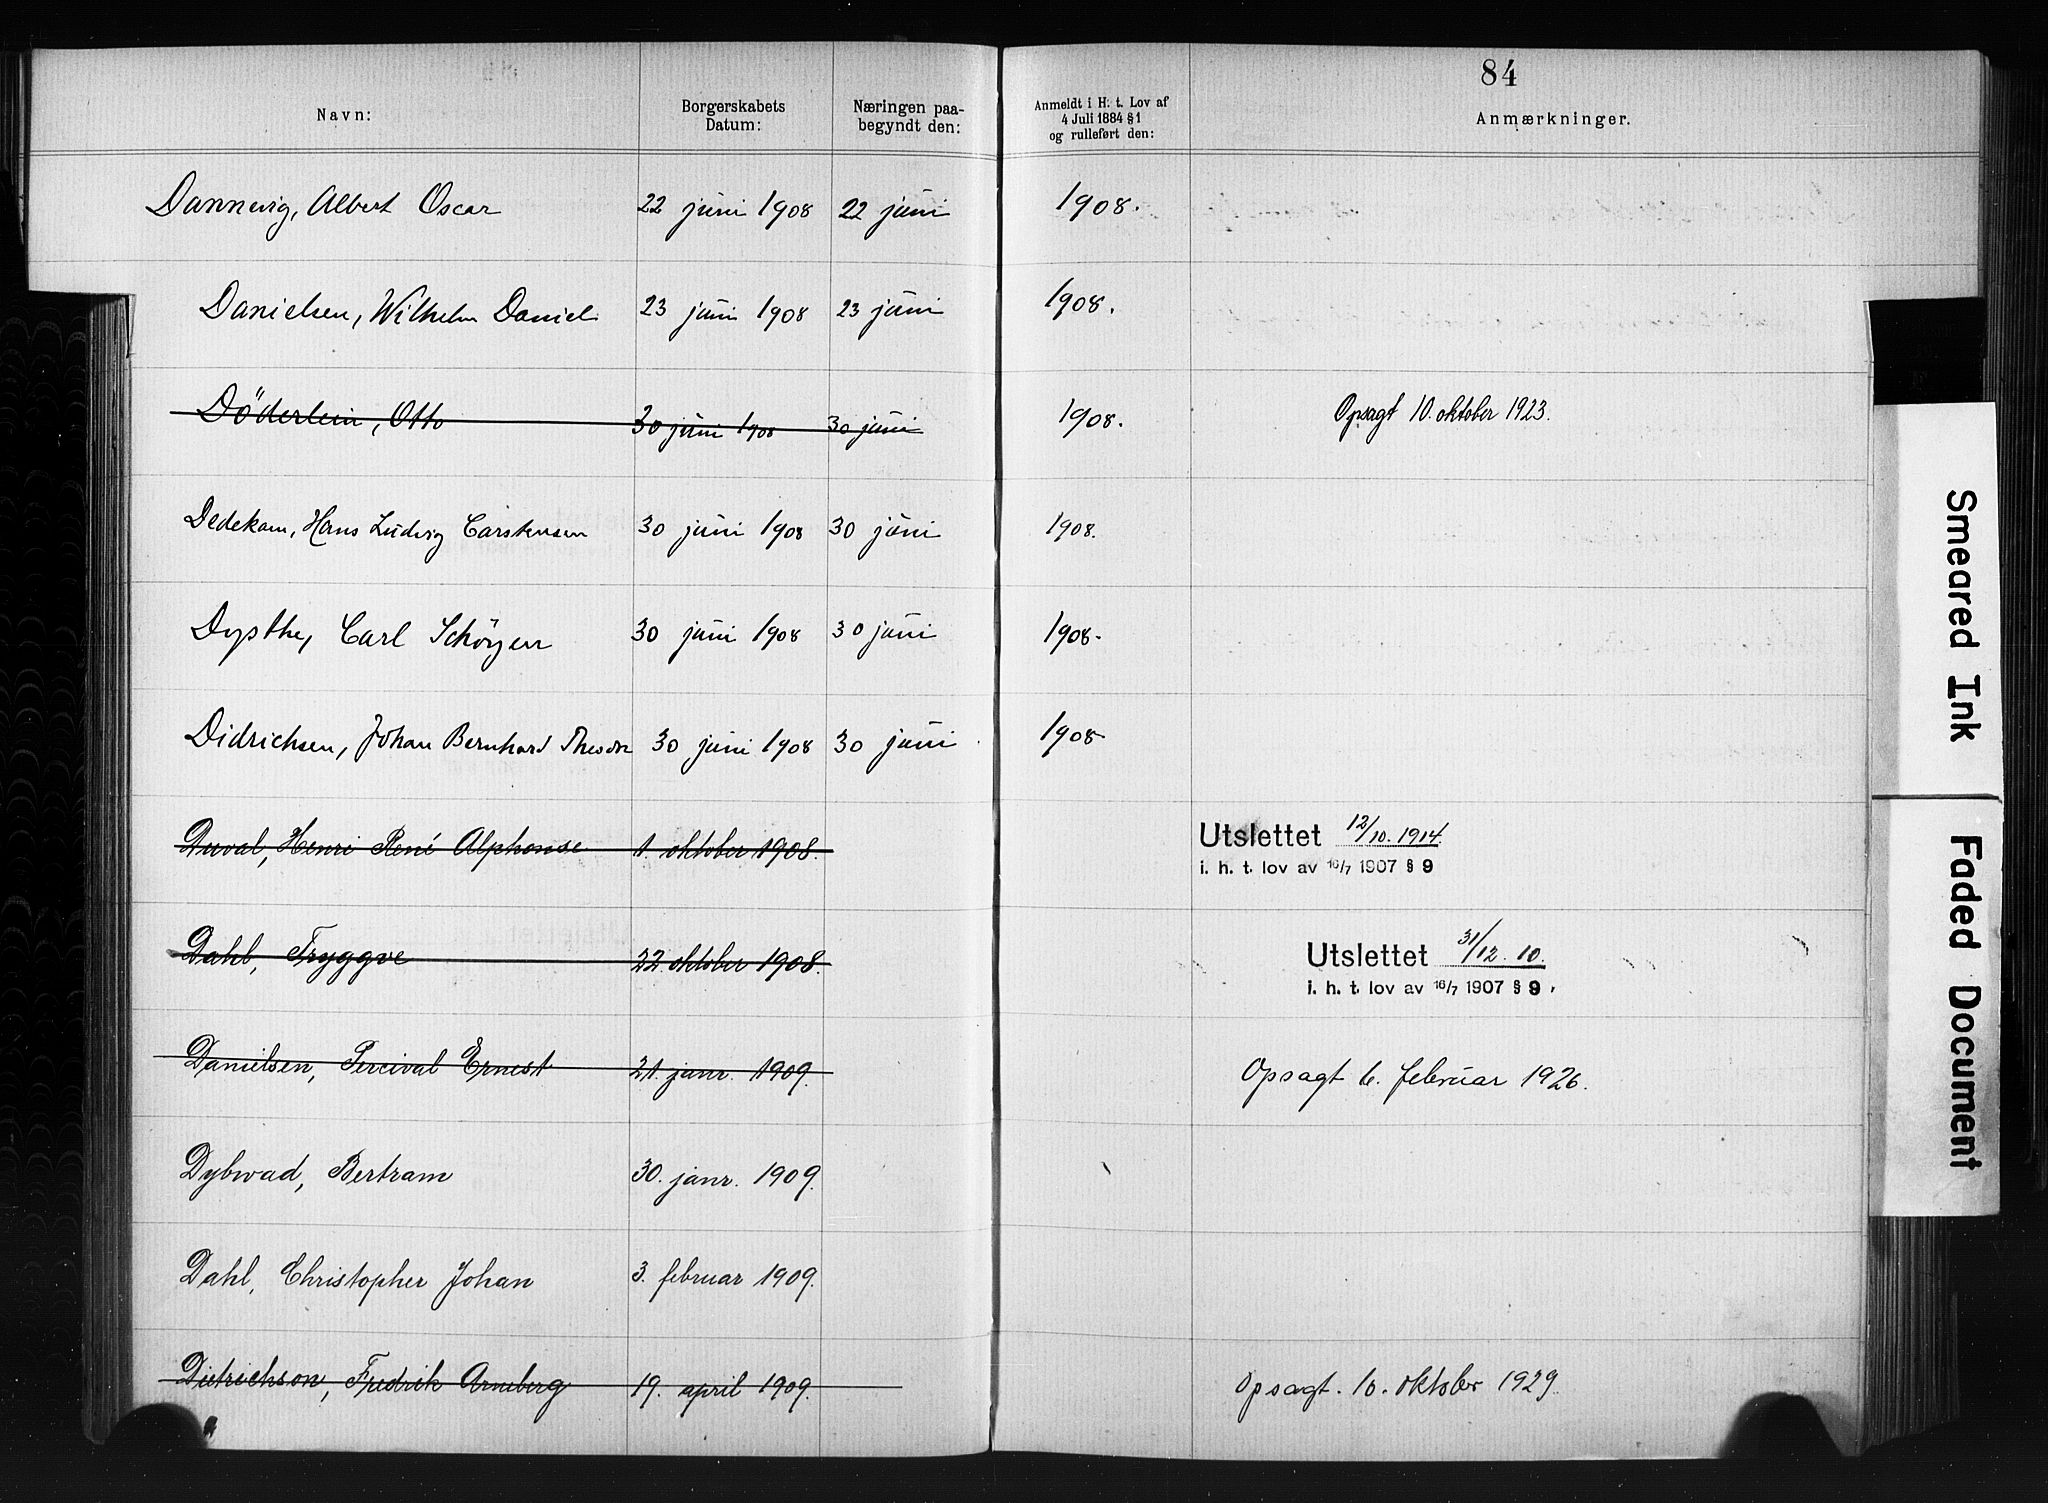 84
Navn: Borgerskabets Datum: Næringen paabegyndt den: Anmeldt i H. t. Lov af 4 Juli 1884 § 1 og rulleført den: Anmærkninger.
Dannevig, Albert Oscar 22 juni 1908 22 juni 1908.
Danielsen, Wilhelm Daniel 23 juni 1908 23 juni 1908.
Döderlein, Otto 30 juni 1908 30 juni 1908. Opsagt 10. oktober 1923.
Dedekam, Hans Ludvig Carstensen 30 juni 1908 30 juni 1908.
Dysthe, Carl Schörgen 30 juni 1908 30 juni 1908.
Didrichsen, Johan Bernhard Theodor 30 juni 1908 30 juni 1908
Duval, Henri René Alphonse 1. oktober 1908. Utslettet 12/10. 1914.
i. h. t. lov av 16/7 1907 § 9
Dahl, Tryggve 22. oktober 1908. Utslettet 31/12. 10.
i. h. t. lov av 16/7 1907 § 9
Danielsen, Percival Ernest 21. janr. 1909. Opsagt 6. februar 1926.
Dybwad, Bertram 30. janr. 1909.
Dahl, Christopher Johan 3. februar 1909.
Dietrichson, Fredrik Arneberg 19. april 1909. Opsagt. 10. oktober 1929.
Smeared Ink
Faded Document